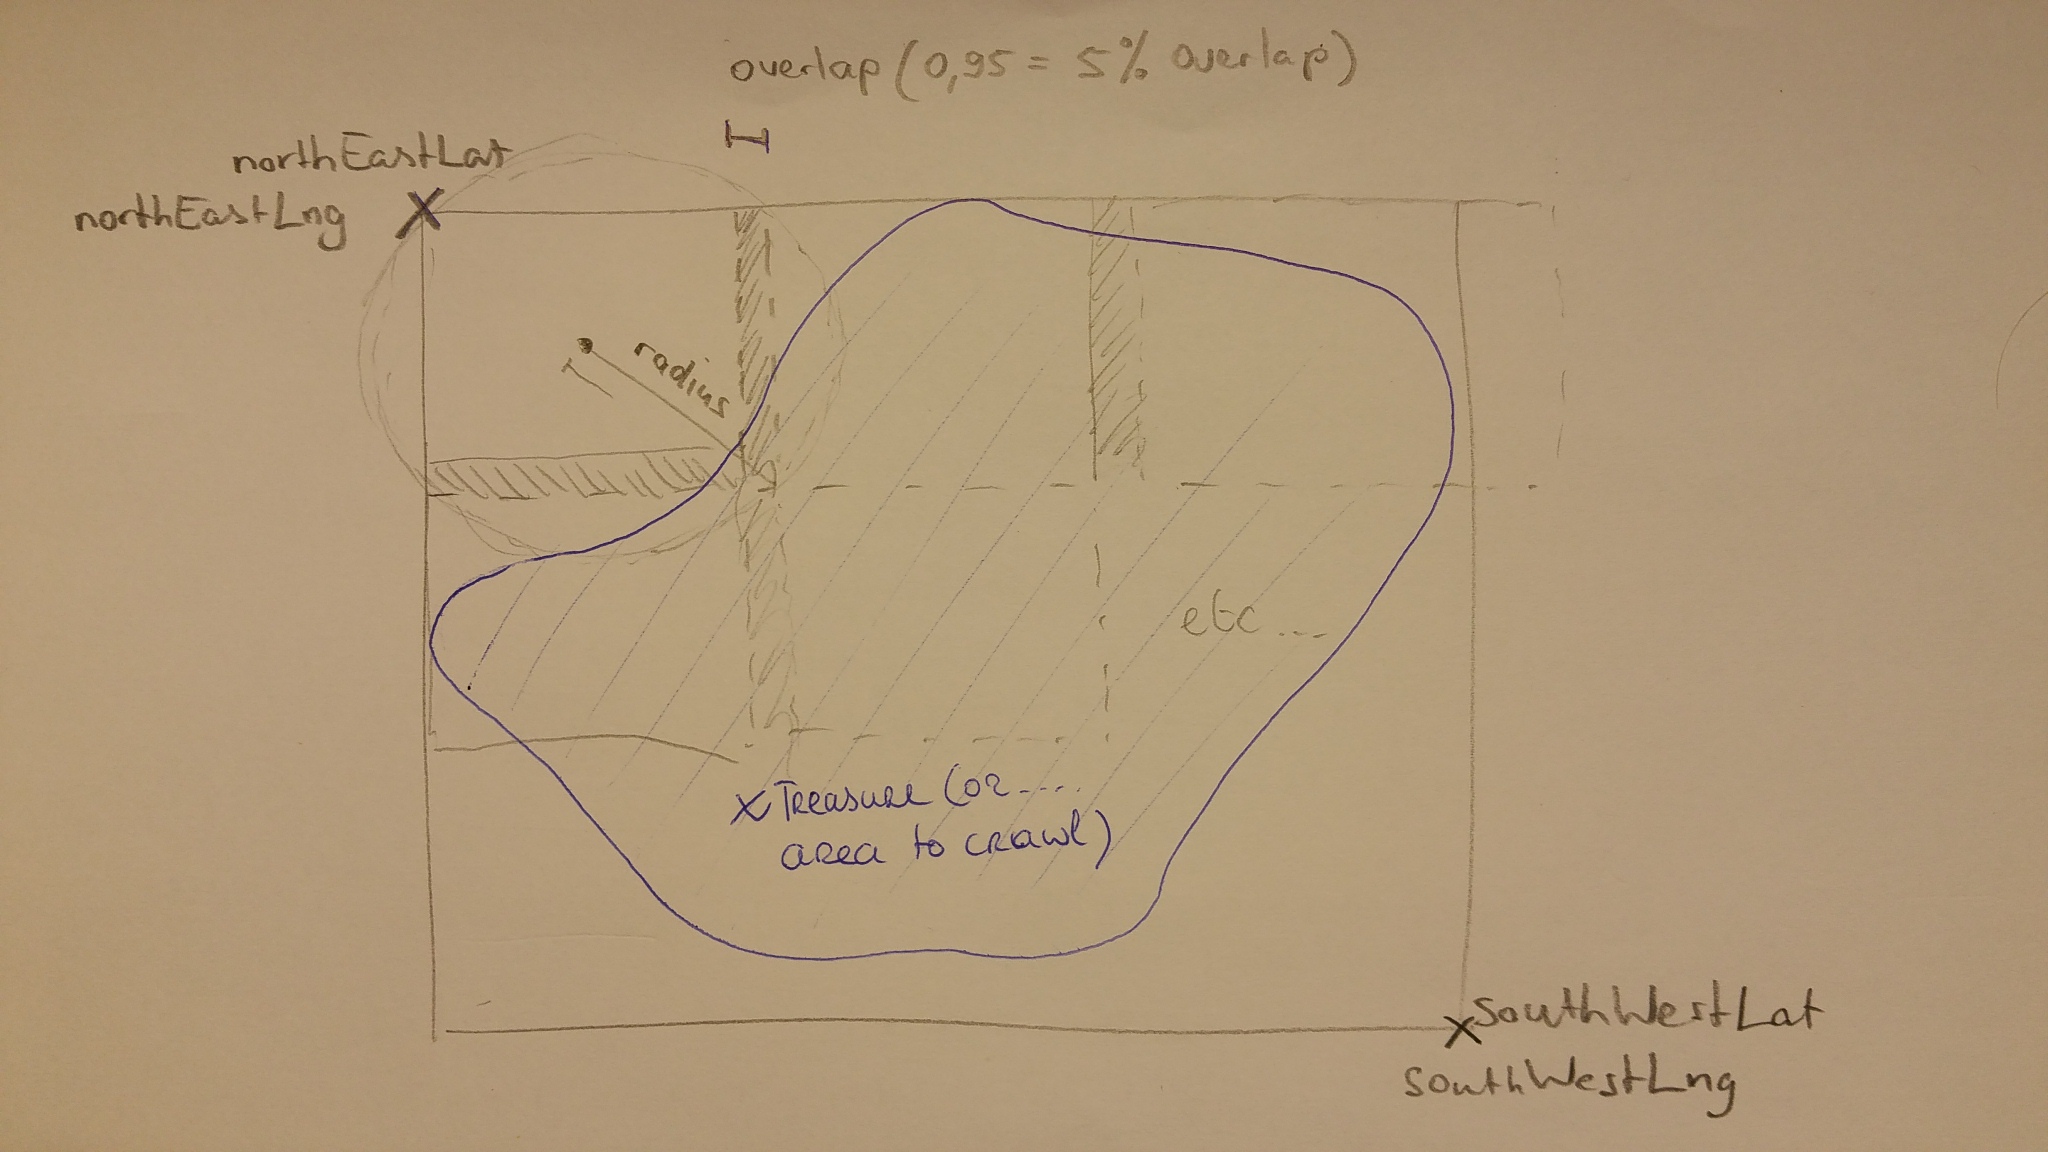 overlap (0,95 = 5% overlap)
northEastLat
northEastLng
radius
etc...
x Treasure (or....
area to crawl)
southWestLat
southWestLng